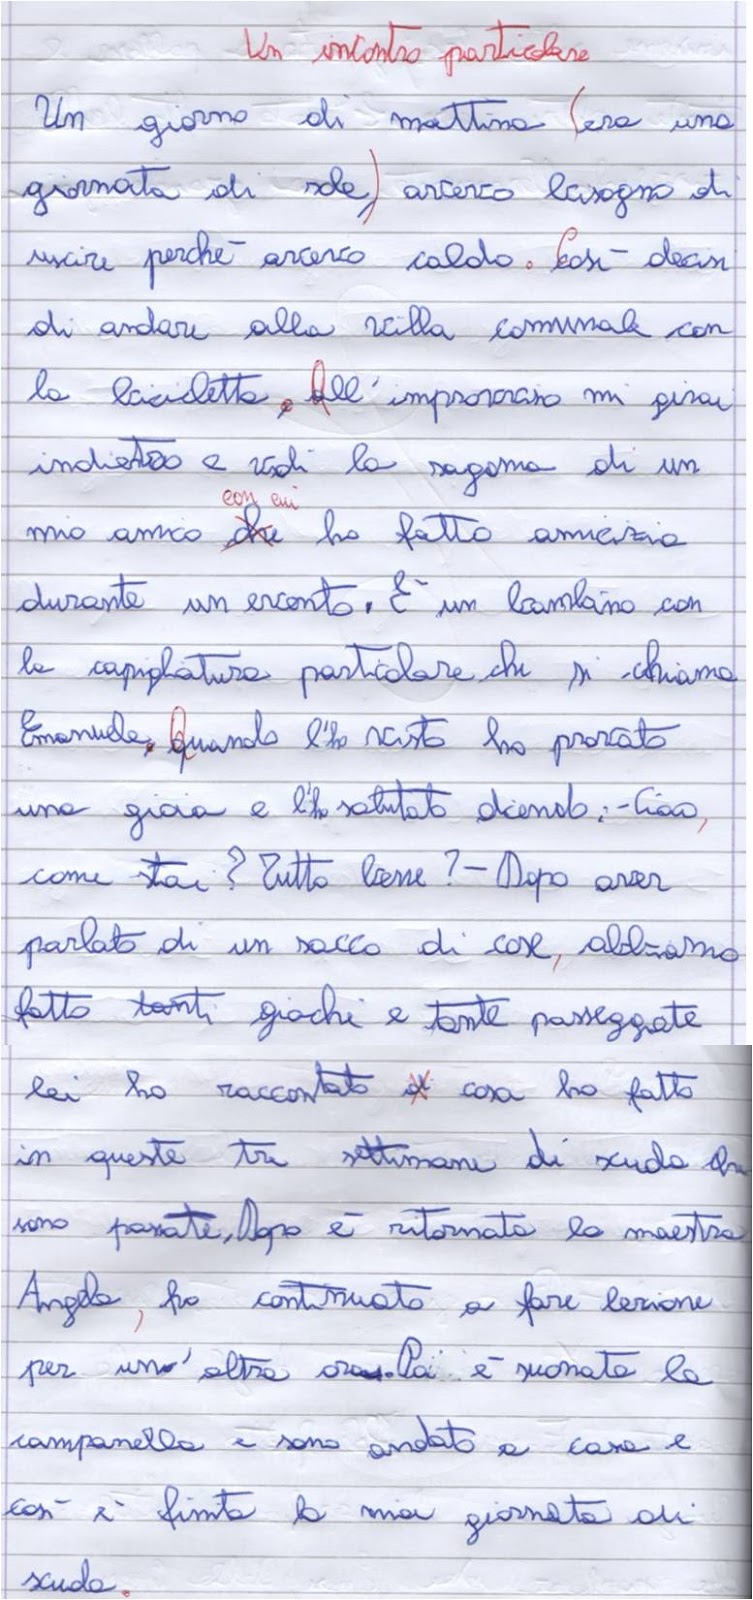 Un incontro particolare
Un giorno di mattina (era una
giornata di sole,) avevo bisogno di
uscire perchè avevo caldo. Così decisi
di andare alla villa comunale con
la bicicletta. All'improvviso mi girai
indietro e vidi la sagoma di un
con cui
mio amico che ho fatto amicizia
durante un evento. È un bambino con
la capigliatura particolare che si chiama
Emanuele. Quando l'ho visto ho provato
una gioia e l'ho salutato dicendo: -Ciao,
come stai? Tutto bene?- Dopo aver
parlato di un sacco di cose, abbiamo
fatto tanti giochi e tante passeggate
lei ho raccontato di cosa ho fatto
in queste tre settimane di scuola che
sono passate. Dopo è ritornata la maestra
Angela, ho continuato a fare lezione
per un'altra ora. Poi è suonata la
campanella e sono andato a casa e
così è finita la mia giornata di
scuola.